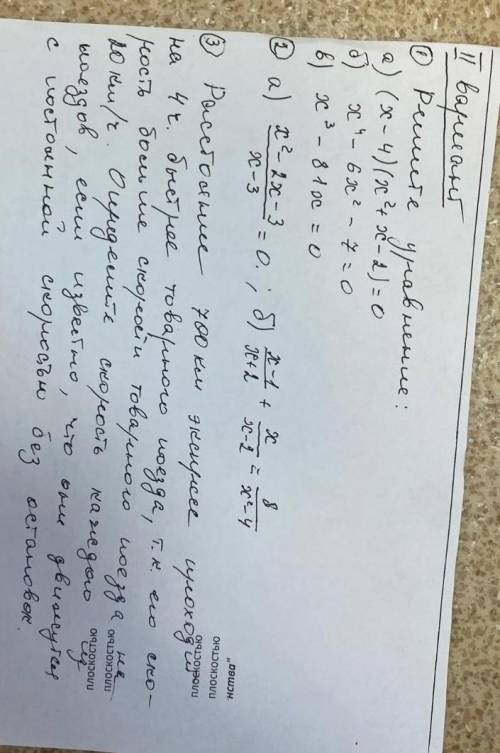 II вариант
① Решите уравнение:
а) (x-4)(x²+x-2)=0
б) x⁴-6x²-7=0
в) x³-81x=0
② а) \frac{x²-2x-3}{x-3}=0. ; б) \frac{x-1}{x+2} + \frac{x}{x-2} = \frac{8}{x²-4}
③ Расстояние 700 км экспресс проходит
на 4 ч. быстрее товарного поезда, т.к. его ско-
рость больше скорости товарного поезда на
20 км/ч. Определите скорость каждого из
поездов, если известно, что они движутся
с постоянной скоростью без остановок.
нства"
плоскостью
плоскостью
плоскостью
плоскостью